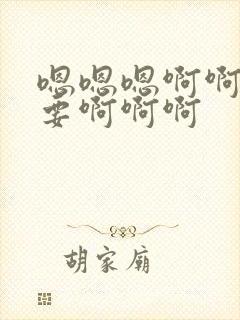 嗯嗯嗯啊啊
要啊啊啊
胡家庙